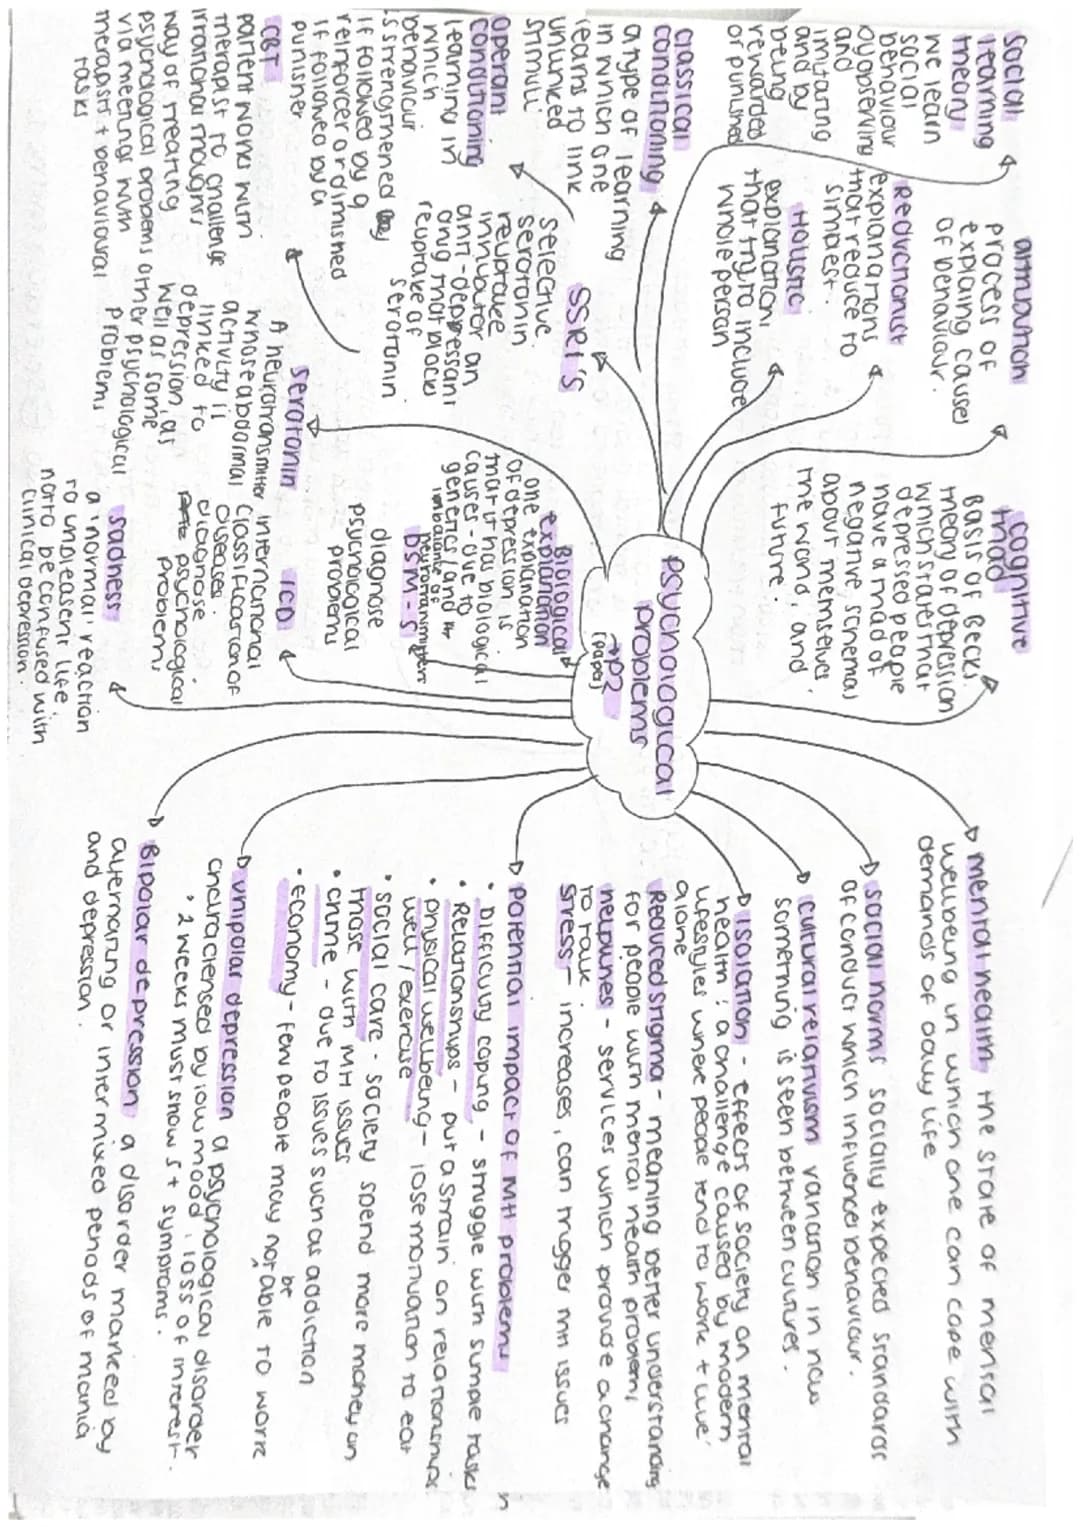 psychological
problems
→ P2
(paper)
mental health the state of mental
wellbeing in which one can cope with
demands of daily life
social norms socially expected standards
of conduct which influence behaviour.
cultural relativism variation in how
something is seen between cultures.
isolation - effects of society on mental
health: a challenge caused by modern
lifestyles where people tend to work + live
alone
Reduced stigma - meaning better understanding
for people with mental health problems
helplines - services which provide a change
to talk.
stress - increases, can trigger MH issues
potential impact of MH problems
• Difficulty coping - struggle with simple tasks
• Relationships - put a strain on relationships
• physical wellbeing - lose motivation to eat
well / exercise
• social care - society spend more money on
those with MH issues
• crime - due to issues such as addiction
• economy - few people may not be able to work
unipolar depression a psychological disorder
characterised by low mood, loss of interest.
• 2 weeks must show 5+ symptoms.
Bipolar depression a disorder marked by
alternating or intermixed periods of mania
and depression.
cognitive
triad
Basis of Beck's
theory of depression
which states that
depressed people
have a triad of
negative schemas
about themselves,
the world, and
future.
attribution
process of
explaing causes
of behaviour.
social
learning
theory
we learn
social
behaviour
by opserving
and
imitating
and by
being
rewarded
or punished
Reductionist
explanations
that reduce to
simplest.
Holistic
explanations
that try to include
whole person
classical
conditioning
a type of learning
in which one
learns to link
unlinked
stimuli
SSRI's
selective
serotonin
reuptake
inhibitor an
anti-depressant
drug that blocks
reuptake of
serotonin
operant
conditioning
learning in
which
behaviour
is strengthened
if followed by a
reinforcer or dimished
if followed by a
punisher
Biological
explanation
one explanation
of depression is
that it has biological
causes - due to
genetics / and
imbalance of
neurotransmitters
DSM-5
diagnose
psychological
problems
CBT
patient works with
therapist to challenge
irrational thoughts
way of treating
psychological problems
via meetings with
therapist + behavioural
tasks
serotonin
A neurotransmitter
whose abdormal
activity is
linked to
depression, as
well as some
other psychological
problems
ICD
international
classification of
diseases.
diagnose
psychological
problems
sadness
a 'normal' reaction
to unpleasent life
not to be confused with
clinical depression.